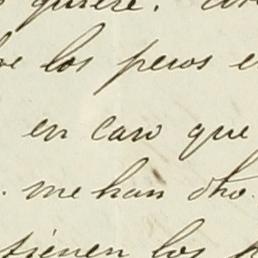 quiere.
los pesos
en caso que
me han dho.
tienen los